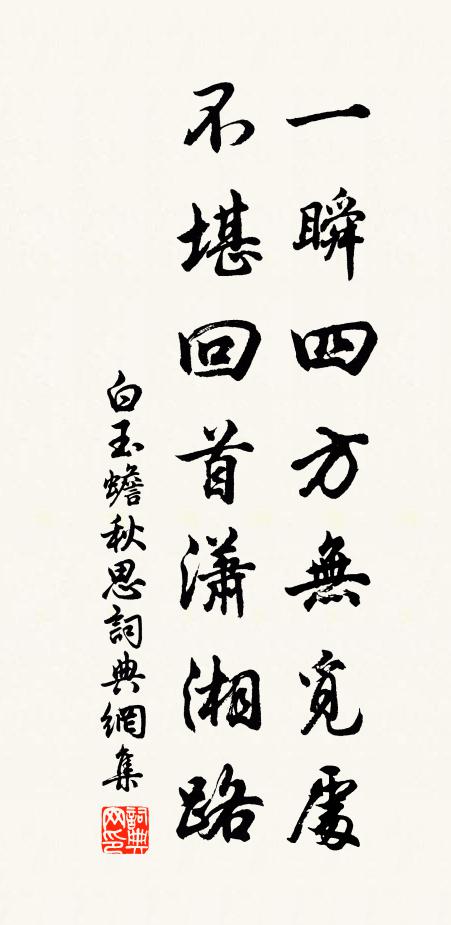 一瞬四方無覓處
不堪回首瀟湘路
白玉蟾秋思詞典網集
詞典網印